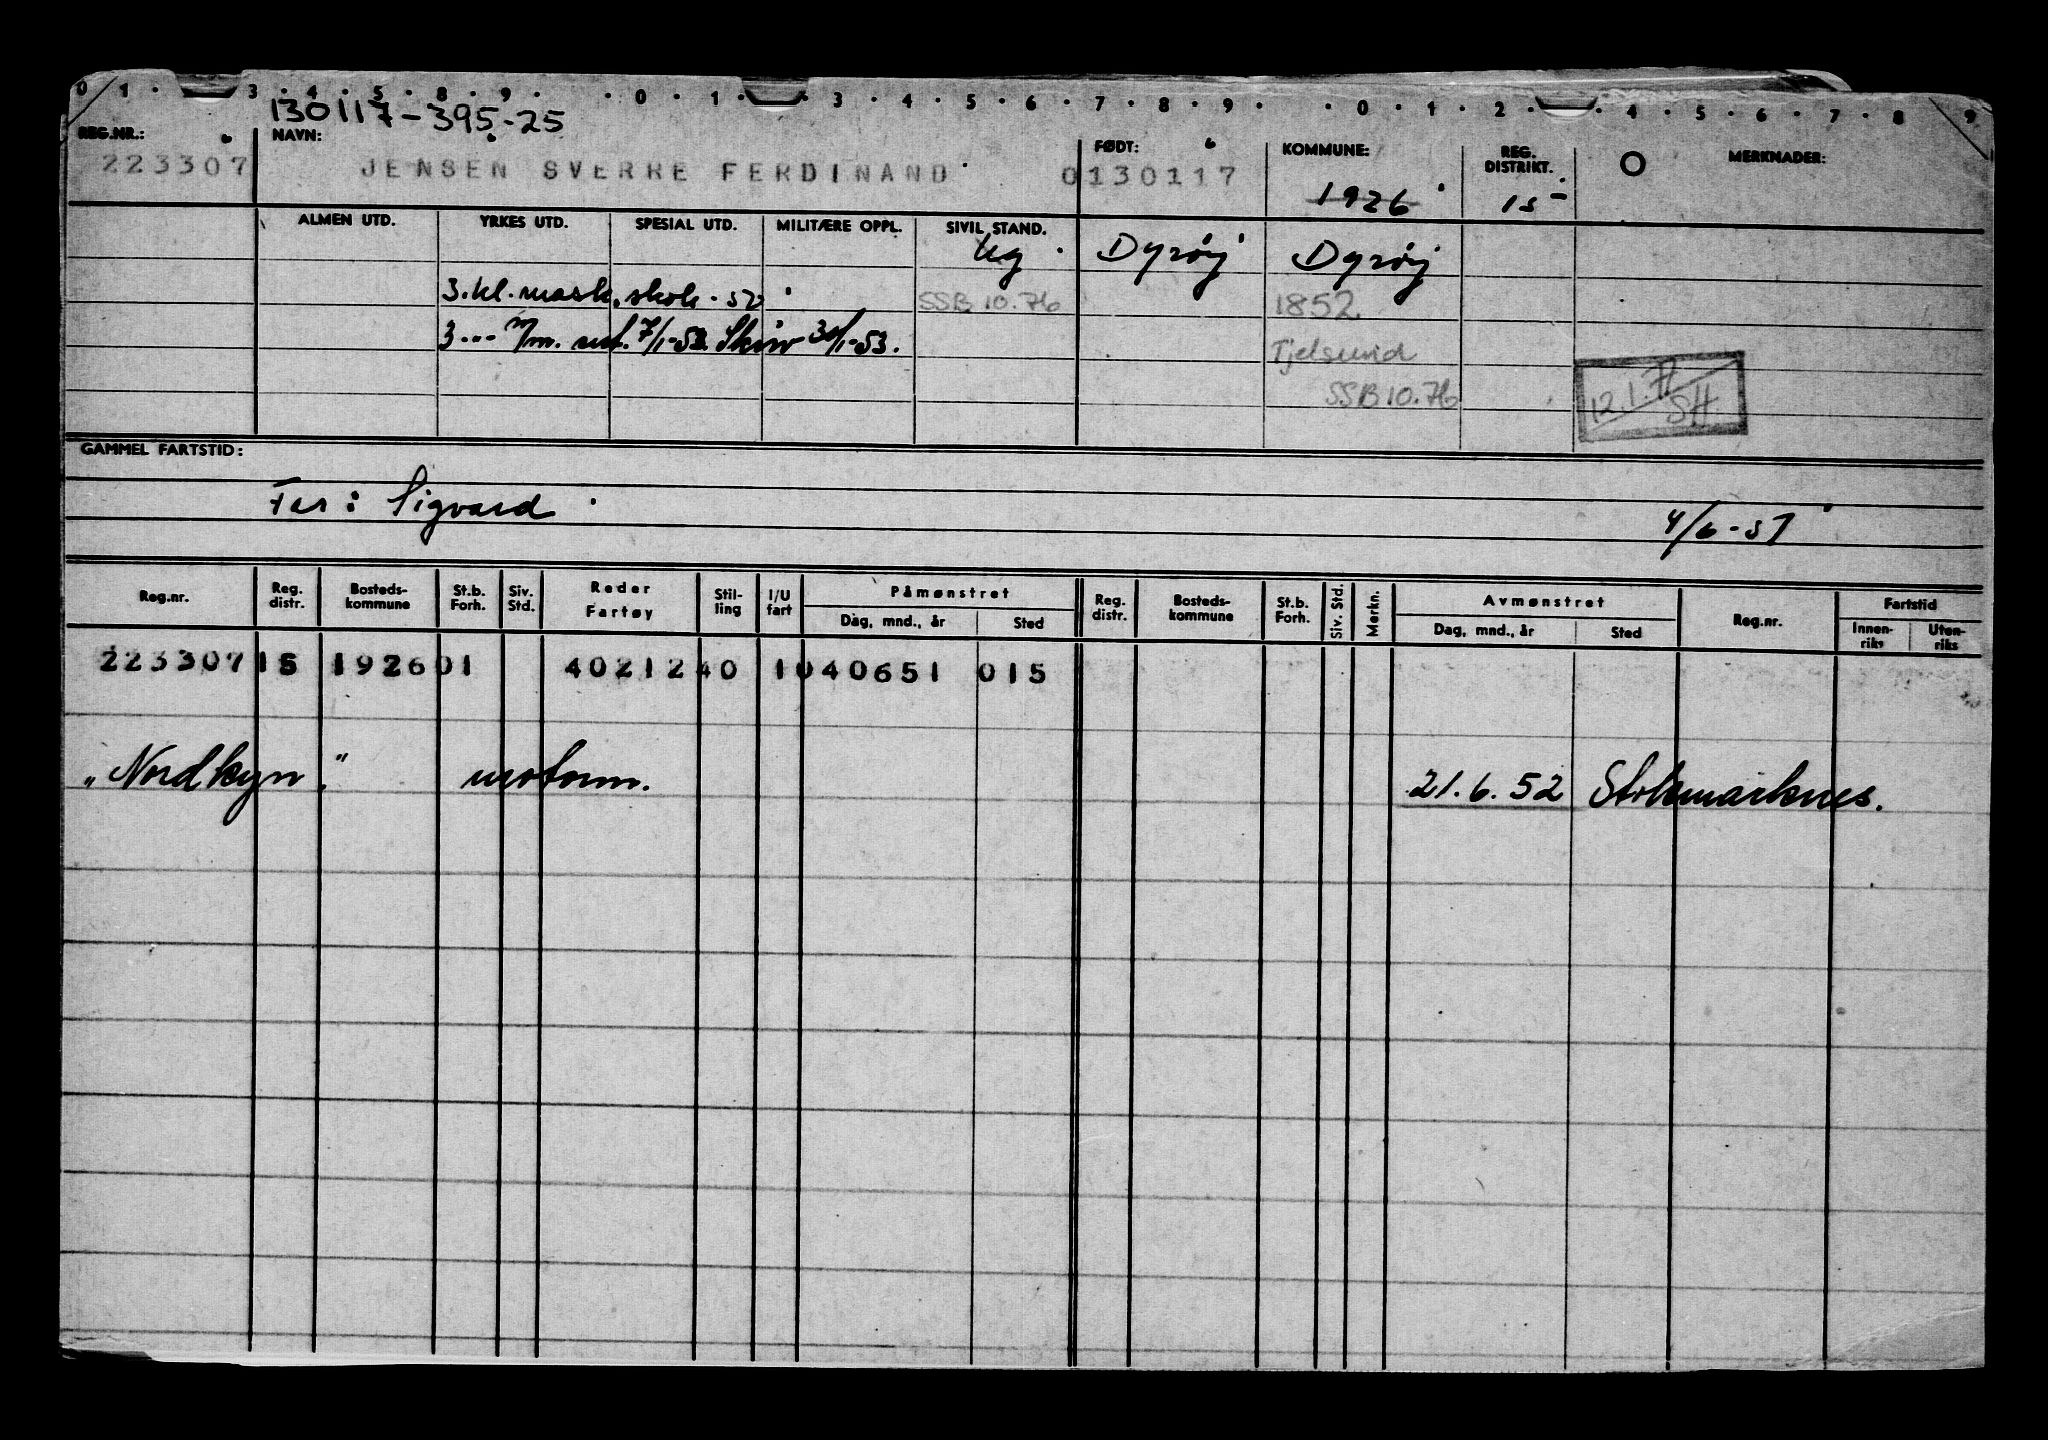 0 1 · 3 · 4 · 5 · 8 · 9 · · 0 · 1 · · 3 · 4 · 5 · 6 · 7 · 8 · 9 · · 0 · 1 · 2 · · 4 · 5 · 6 · 7 · 8 9
130117-395-25
REG.NR.: NAVN: FØDT: KOMMUNE: REG. DISTRIKT. MERKNADER:
223307 JENSEN SVERRE FERDINAND 0130117 1926 15
ALMEN UTD. YRKES UTD. SPESIAL UTD. MILITÆRE OPPL. SIVIL STAND.
Ug Dyrøy Dyrøy
3.kl. mask. skole - 52 SSB 10.76 1852
3 --- 7/1-53 31/1-53. Tjelsund
SSB 10.76
12.1.77 SH
GAMMEL FARTSTID:
Far: Sigvard
4/6-51
Reg.nr. Reg. distr. Bosteds- kommune St.b. Forh. Siv. Std. Reder Fartøy Stil- ling I/U fart Påmønstret Dag, mnd., år Sted Reg. distr. Bosteds- kommune St.b. Forh. Siv. Std. Merkn. Avmønstret Dag, mnd., år Sted Reg.nr. Fartstid Innen- riks Uten- riks
223307 15 1926 01 40212 40 1 040651 015
"Nordkyn." motorm. 21.6.52 Stokmarknes.